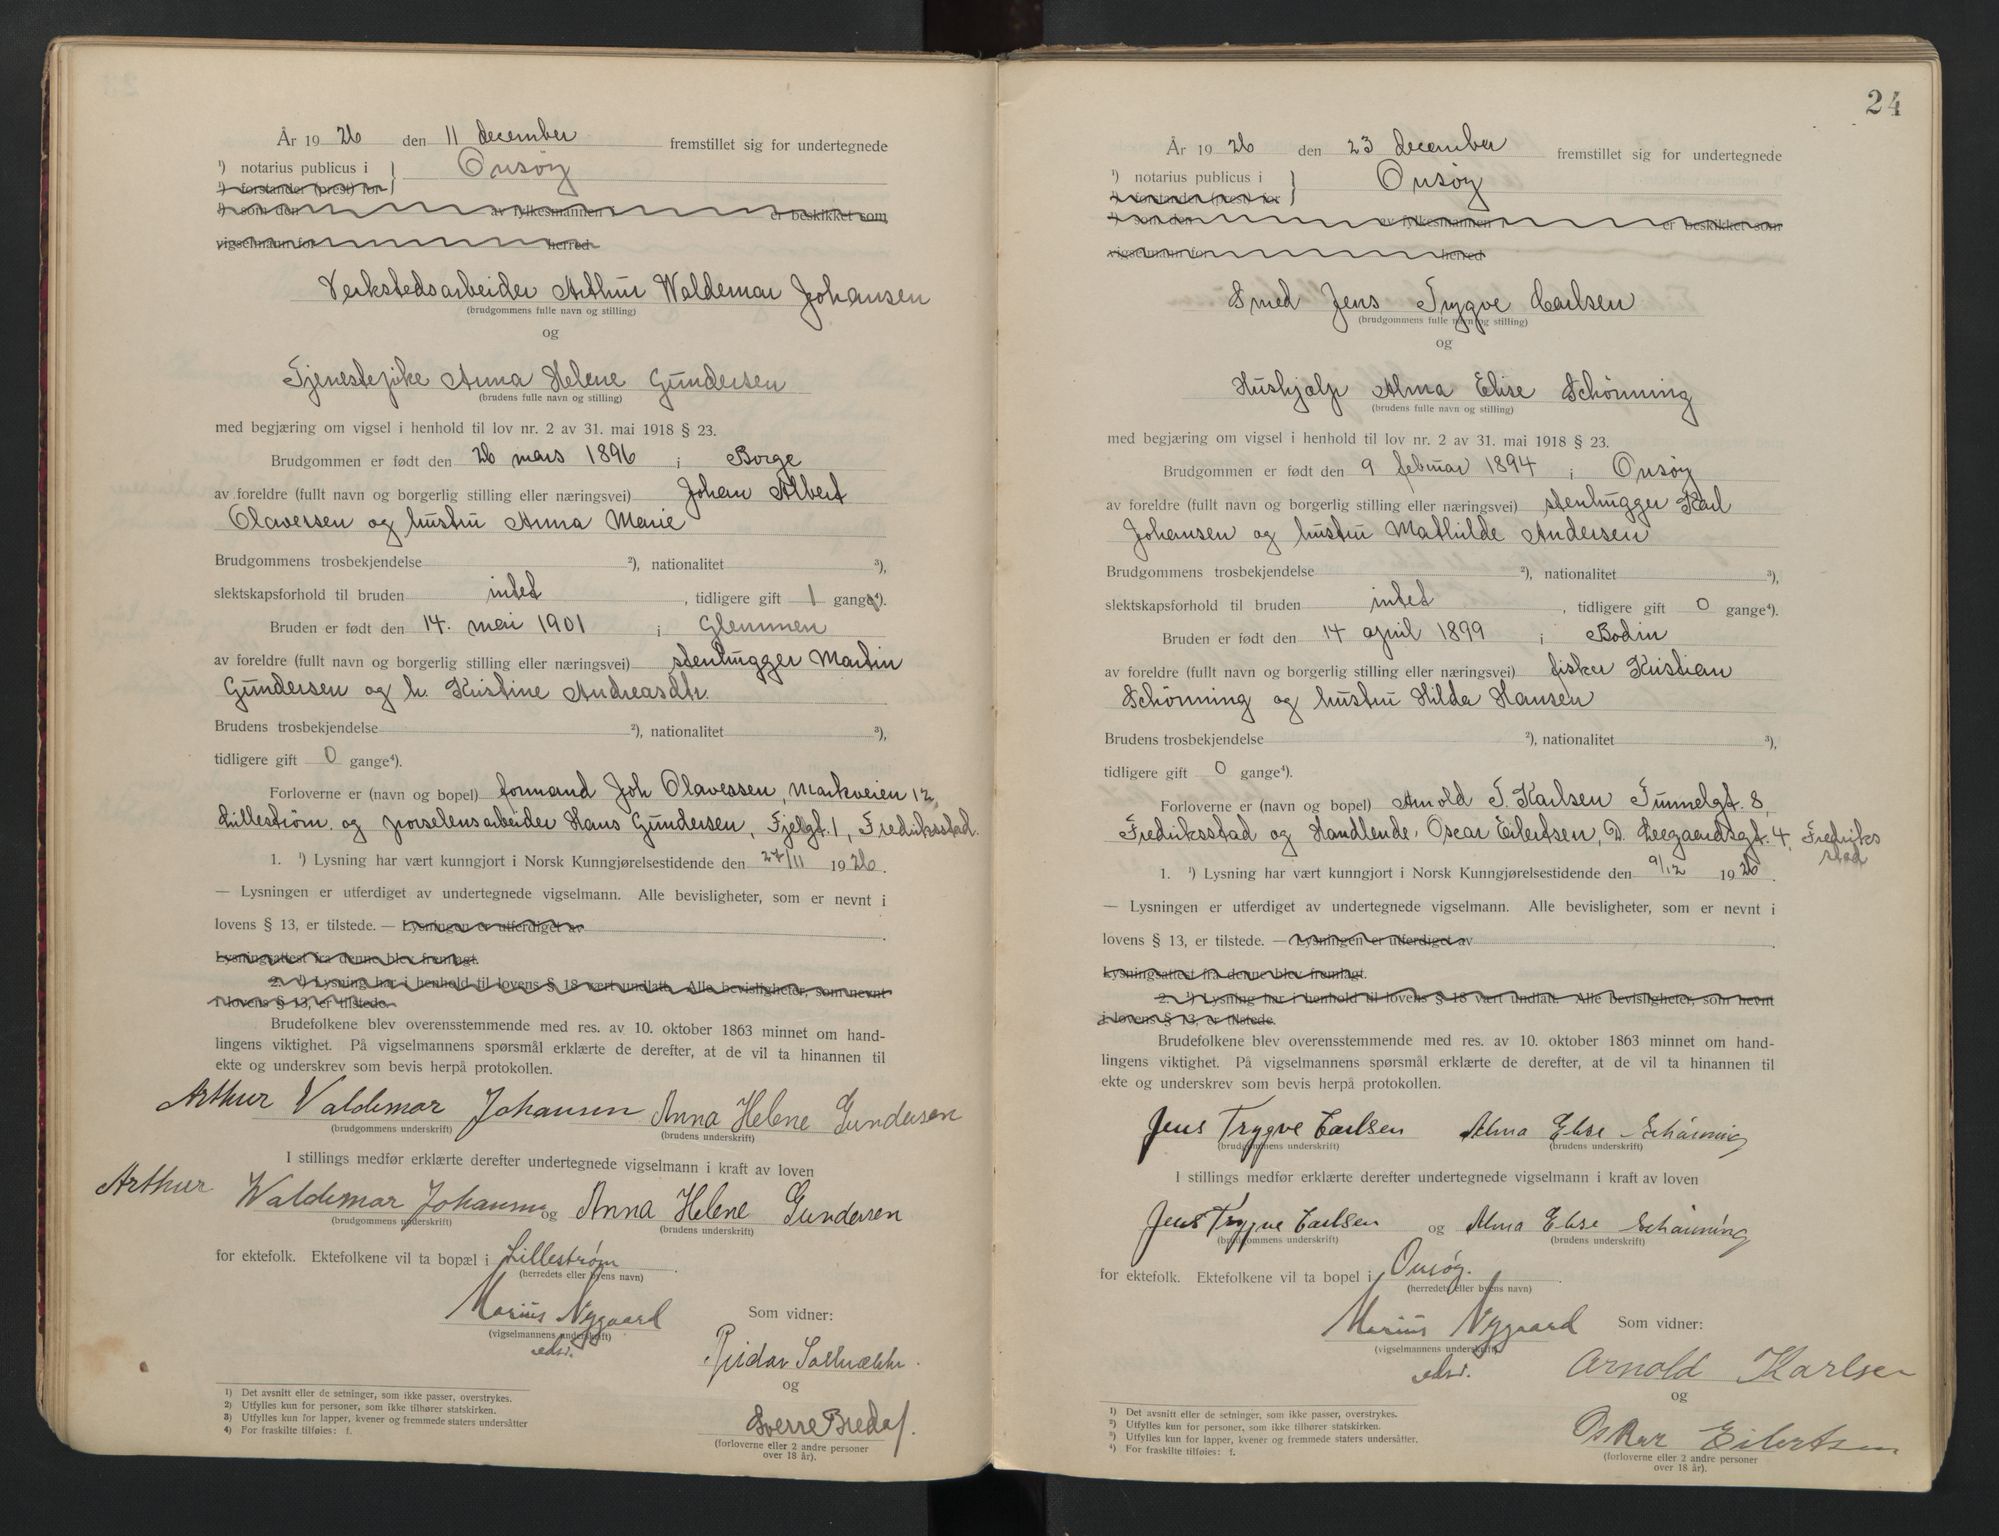 År 1926 den 11 december fremstillet sig for undertegnede
¹) notarius publicus i } Onsøy
¹) forstander (prest) for
¹) som den av fylkesmannen i er beskikket som
vigselmann for herred
Verkstedsarbeider Arthur Waldemar Johansen
(brudgommens fulle navn og stilling)
og
Tjenestepike Anna Helene Gundersen
(brudens fulle navn og stilling)
med begjæring om vigsel i henhold til lov nr. 2 av 31. mai 1918 § 23.
Brudgommen er født den 26 mars 1896 i Borge
av foreldre (fullt navn og borgerlig stilling eller næringsvei) Johan Albert
Olavesen og hustru Anna Marie
Brudgommens trosbekjendelse ²), nationalitet ³),
slektskapsforhold til bruden intet, tidligere gift 1 gange⁴).
Bruden er født den 14. mai 1901 i Glemmen
av foreldre (fullt navn og borgerlig stilling eller næringsvei) stenhugger Martin
Gundersen og h. Kristine Andreasdtr.
Brudens trosbekjendelse ²), nationalitet ³),
tidligere gift 0 gange⁴).
Forloverne er (navn og bopel) formand Joh Olavessen, Markveien 12,
Lillestrøm og porselensarbeider Hans Gundersen, Fjelgt. 1, Fredriksstad.
1. ¹) Lysning har vært kunngjort i Norsk Kunngjørelsestidende den 27/11 1926.
— Lysningen er utferdiget av undertegnede vigselmann. Alle bevisligheter, som er nevnt i
lovens § 13, er tilstede. — Lysningen er utferdiget av
Lysningsattest fra denne blev fremlagt.
2. ¹) Lysning har i henhold til lovens § 18 vært undlatt. Alle bevisligheter, som nevnt
i lovens § 13, er tilstede.
Brudefolkene blev overensstemmende med res. av 10. oktober 1863 minnet om hand-
lingens viktighet. På vigselmannens spørsmål erklærte de derefter, at de vil ta hinannen til
ekte og underskrev som bevis herpå protokollen.
Arthur Valdemar Johansen Anna Helene Gundersen
(brudgommens underskrift) (brudens underskrift)
I stillings medfør erklærte derefter undertegnede vigselmann i kraft av loven
Arthur Waldemar Johansen og Anna Helene Gundersen
(brudgommens underskrift) (brudens underskrift)
for ektefolk. Ektefolkene vil ta bopæl i Lillestrøm.
(herredets eller byens navn)
Marius Nygaard Som vidner:
(vigselmannens underskrift)
edsv.
Reidar
og
Sverre
(forloverne eller 2 andre personer
over 18 år).
¹) Det avsnitt eller de setninger, som ikke passer, overstrykes.
²) Utfylles kun for personer, som ikke tilhører statskirken.
³) Utfylles kun for lapper, kvener og fremmede staters undersåtter
⁴) For fraskilte tilføies: f.
24
År 1926 den 23 december fremstillet sig for undertegnede
¹) notarius publicus i } Onsøy
¹) forstander (prest) for
¹) som den av fylkesmannen i er beskikket som
vigselmann for herred
Smed Jens Trygve Carlsen
(brudgommens fulle navn og stilling)
og
Hushjælp Alma Elise Schønning
(brudens fulle navn og stilling)
med begjæring om vigsel i henhold til lov nr. 2 av 31. mai 1918 § 23.
Brudgommen er født den 9 februar 1894 i Onsøy
av foreldre (fullt navn og borgerlig stilling eller næringsvei) stenhugger Karl
Johansen og hustru Mathilde Andersen
Brudgommens trosbekjendelse ²), nationalitet ³),
slektskapsforhold til bruden intet, tidligere gift 0 gange⁴).
Bruden er født den 14 april 1899 i Bodin
av foreldre (fullt navn og borgerlig stilling eller næringsvei) fisker Kristian
Schønning og hustru Hilda Hansen
Brudens trosbekjendelse ²), nationalitet ³),
tidligere gift 0 gange⁴).
Forloverne er (navn og bopel) Arnold T. Karlsen Tunnelgt. 8,
Fredriksstad og Handlende Oscar Eilertsen, D. Leegaardsgt. 4, Fredriks
stad
1. ¹) Lysning har vært kunngjort i Norsk Kunngjørelsestidende den 9/12 1926.
— Lysningen er utferdiget av undertegnede vigselmann. Alle bevisligheter, som er nevnt i
lovens § 13, er tilstede. — Lysningen er utferdiget av
Lysningsattest fra denne blev fremlagt.
2. ¹) Lysning har i henhold til lovens § 18 vært undlatt. Alle bevisligheter, som nevnt
i lovens § 13, er tilstede.
Brudefolkene blev overensstemmende med res. av 10. oktober 1863 minnet om hand-
lingens viktighet. På vigselmannens spørsmål erklærte de derefter, at de vil ta hinannen til
ekte og underskrev som bevis herpå protokollen.
Jens Trygve Carlsen Alma Elise Schønning
(brudgommens underskrift) (brudens underskrift)
I stillings medfør erklærte derefter undertegnede vigselmann i kraft av loven
Jens Trygve Carlsen og Alma Elise Schønning
(brudgommens underskrift) (brudens underskrift)
for ektefolk. Ektefolkene vil ta bopel i Onsøy.
(herredets eller byens navn)
Marius Nygaard Som vidner:
(vigselmannens underskrift)
edsv.
Arnold Karlsen
og
Oskar Eilertsen
(forloverne eller 2 andre personer
over 18 år).
¹) Det avsnitt eller de setninger, som ikke passer, overstrykes.
²) Utfylles kun for personer, som ikke tilhører statskirken.
³) Utfylles kun for lapper, kvener og fremmede staters undersåtter.
⁴) For fraskilte tilføies: f.